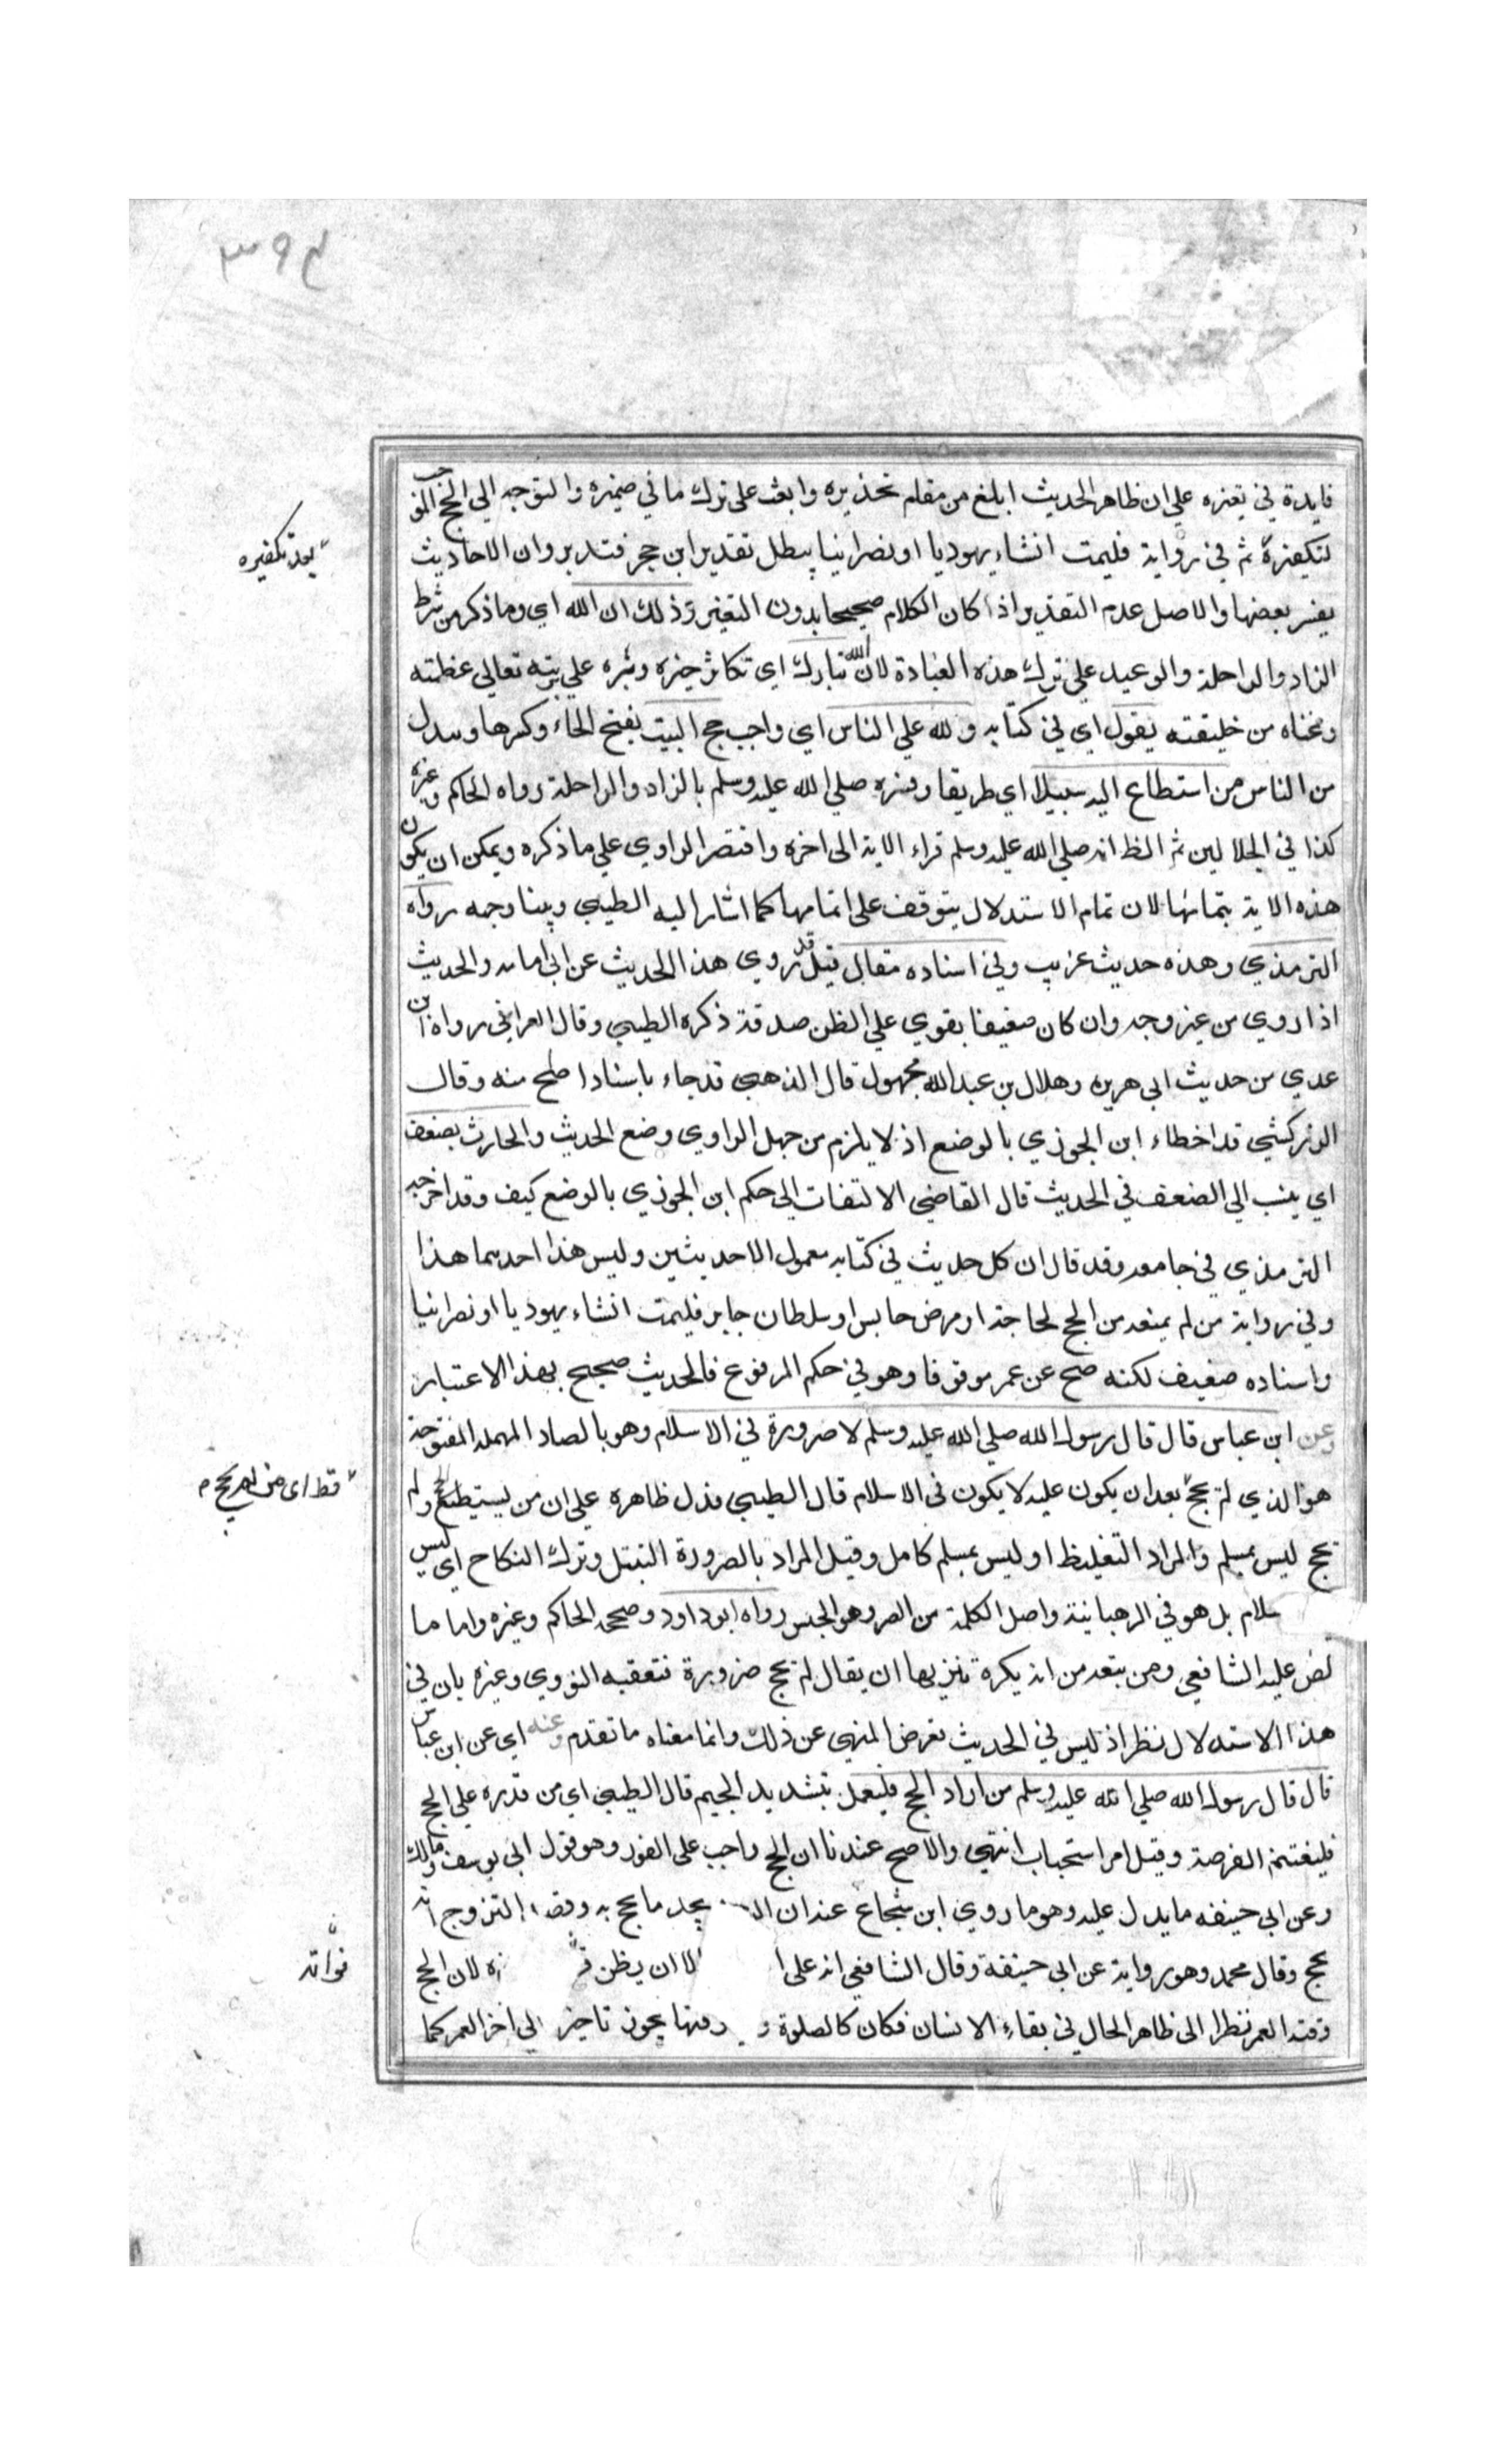 ٣٩٤
فايدة في تعزه علي ان ظاهر الحديث ابلغ من مقام تحذيره وابعث على ترك ما في ضميره والتوجه الي الحج الموجب
لتكفيره ثم في رواية فليمت انشاء يهوديا او نصرانيا يبطل تقدير ابن حجر فتدبر وان الاحاديث
بعد تكفيره
يفسر بعضها والاصل عدم التقدير اذا كان الكلام صحيحا بدون التغير وذلك ان الله اي وما ذكر من شرط
الزاد والراحلة والوعيد علي ترك هذه العبادة لان الله تبارك اي تكاثر خيره وبره علي بريته تعالي عظمته
وغناه من خليقته يقول اي في كتابه ولله علي الناس اي واجب حج البيت بفتح الحاء وكسرها ويبدل
من الناس من استطاع اليه سبيلا اي طريقا وفسره صلي الله عليه وسلم بالزاد والراحلة رواه الحاكم وغيره
كذا في الجلالين ثم الظ انه صلي الله عليه وسلم قراء الاية الى اخره واقتصر الراوي علي ما ذكره ويمكن ان يكون
هذه الاية بتمامها لان تمام الاستدلال يتوقف على اتمامها كما اشار اليه الطيبي وبينا وجهه رواه
الترمذي وهذه حديث غريب وفي اسناده مقال قيل قد روي هذا الحديث عن ابي امامه والحديث
اذا روي من غير وجه وان كان ضعيفا يقوي علي الظن صدقه ذكره الطيبي وقال العراقي رواه ابن
عدي من حديث ابي هريره وهلال بن عبد الله مجهول قال الذهبي قد جاء باسناد اصلح منه وقال
الزركشي قد اخطاء ابن الجوزي بالوضع اذ لا يلزم من جهل الراوي وضع الحديث والحارث يضعف
اي ينسب الي الضعف في الحديث قال القاضي الالتفات الى حكم ابن الجوزي بالوضع كيف وقد اخرجه
الترمذي في جامعه وقد قال ان كل حديث في كتابه معمول الاحديثين وليس هذا احدهما هذا
وفي رواية من لم يمنعه من الحج لحاجة او مرض حابس او سلطان جابر فليمت انشاء يهوديا او نصرانيا
واسناده ضعيف لكنه صح عن عمر موقوفا وهو في حكم المرفوع فالحديث صحيح بهذا الاعتبار
وعن ابن عباس قال قال رسول الله صلي الله عليه وسلم لا صرورة في الاسلام وهو بالصاد المهملة المفتوحة
هو الذي لم يحج بعد ان يكون عليه لا يكون في الاسلام قال الطيبي فدل ظاهره علي ان من يستطيع الحج ولم
قط اى من لم يحج م
يحج ليس بمسلم والمراد التغليظ او ليس بمسلم كامل وقيل المراد بالصرورة التبتل وترك النكاح اي ليس
سلام بل هو في الرهبانية واصل الكلمة من الصر وهو الحبس رواه ابو داود وصححه الحاكم وغيره واما ما
نص عليه الشافعي ومن بتعه من انه يكره تنزيها ان يقال لم يحج ضرورة فتعقبه النووي وغيره بان في
هذا الاستدلال نظر اذ ليس في الحديث تعرض المنهي عن ذلك وانما معناه ما تقدم وعنه اي عن ابن عباس
قال قال رسول الله صلي الله عليه وسلم من اراد الحج فليعجل بتشديد الجيم قال الطيبي اي من قدره علي الحج
فليغتنم الفرصة وقيل امر استحباب انتهي والاصح عندنا ان الحج واجب على الفور وهو قول ابي يوسف ومالك
وعن ابي حنيفه ما يدل عليه وهو ما روي ابن شجاع عنه ان يجد ما يحج به وقصد التزوج انه
يحج وقال محمد وهو رواية عن ابي حنيفة وقال الشافعي انه على الا ان يظن لان الحج
فواته
وقته العمر نظرا الى ظاهر الحال في بقاء الانسان فكان كالصلوة وقتها يجوز تاخير الي اخر العمر كما